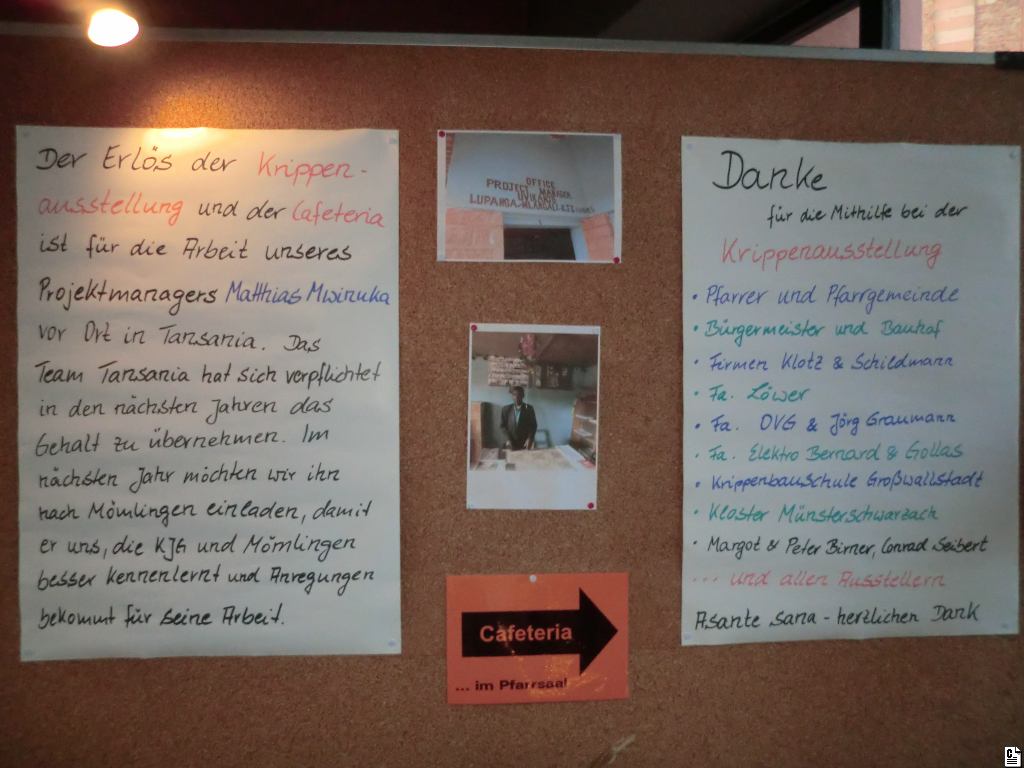 Der Erlös der Krippen-
ausstellung und der Cafeteria
ist für die Arbeit unseres
Projektmanagers Matthias Mwinuka
vor Ort in Tansania. Das
Team Tansania hat sich verpflichtet
in den nächsten Jahren das
Gehalt zu übernehmen. Im
nächsten Jahr möchten wir ihn
nach Mömlingen einladen, damit
er uns, die KJG und Mömlingen
besser kennenlernt und Anregungen
bekommt für seine Arbeit.
OFFICE
PROJECT MANAGER
LUPANGA-MLANGALI-
Cafeteria
... im Pfarrsaal
Danke
für die Mithilfe bei der
Krippenausstellung
• Pfarrer und Pfarrgemeinde
• Bürgermeister und Bauhof
• Firmen Klotz & Schildmann
• Fa. Löwer
• Fa. OVG & Jörg Graumann
• Fa. Elektro Bernard & Gollas
• Krippenbauschule Großwallstadt
• Kloster Münsterschwarzach
• Margot & Peter Birner, Conrad Seibert
... und allen Ausstellern
Asante sana - herzlichen Dank